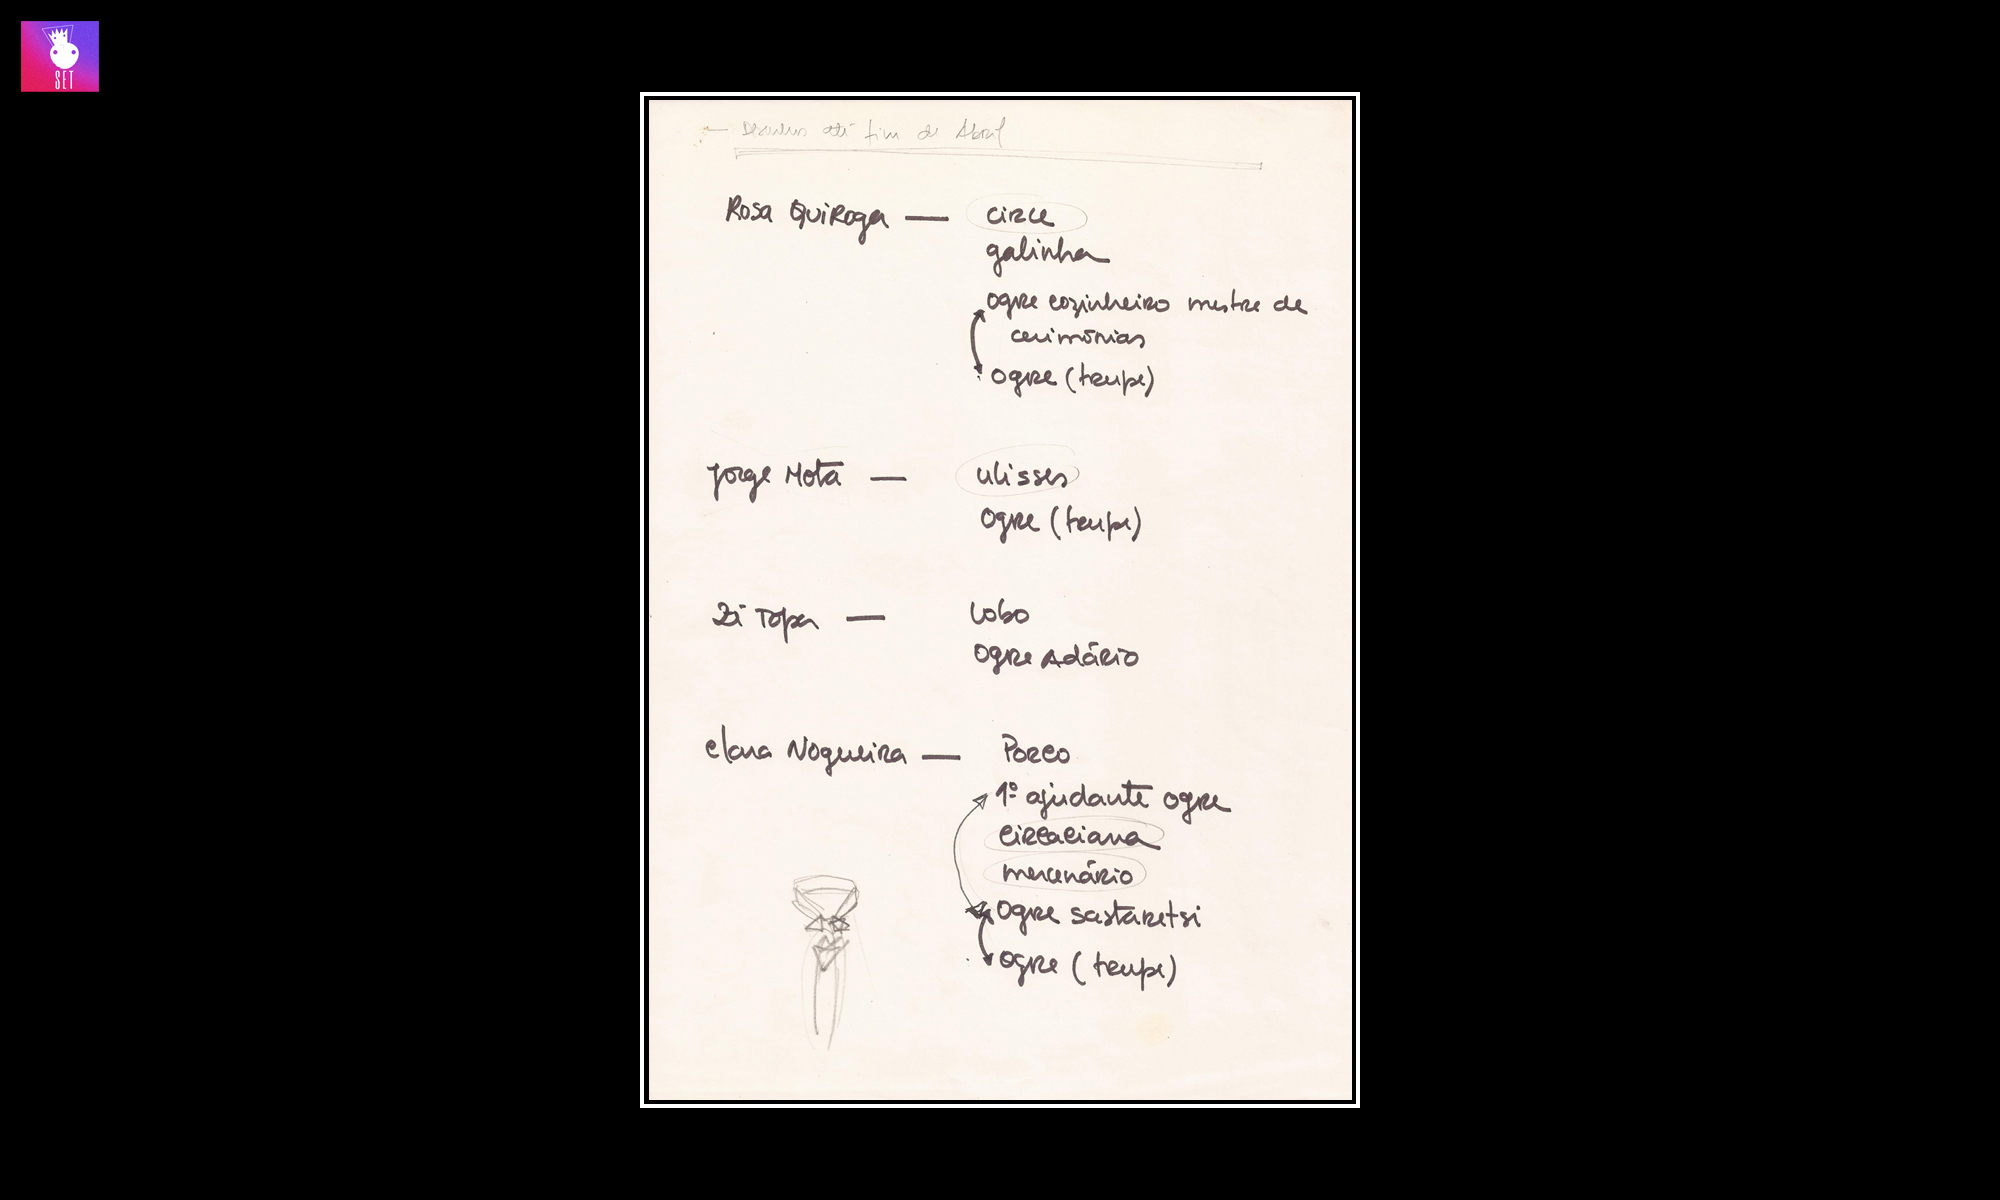 SET
— Desenhos até fim de Abril
Rosa Quiroga — circe
galinha
ogre cozinheiro mestre de
cerimónias
ogre (trupe)
Jorge Mota — ulisses
ogre (trupe)
Zé Topa — Lobo
ogre Adário
Clara Nogueira — Porco
1º ajudante ogre
circaciana
mercenário
ogre sastaretsi
ogre (trupe)